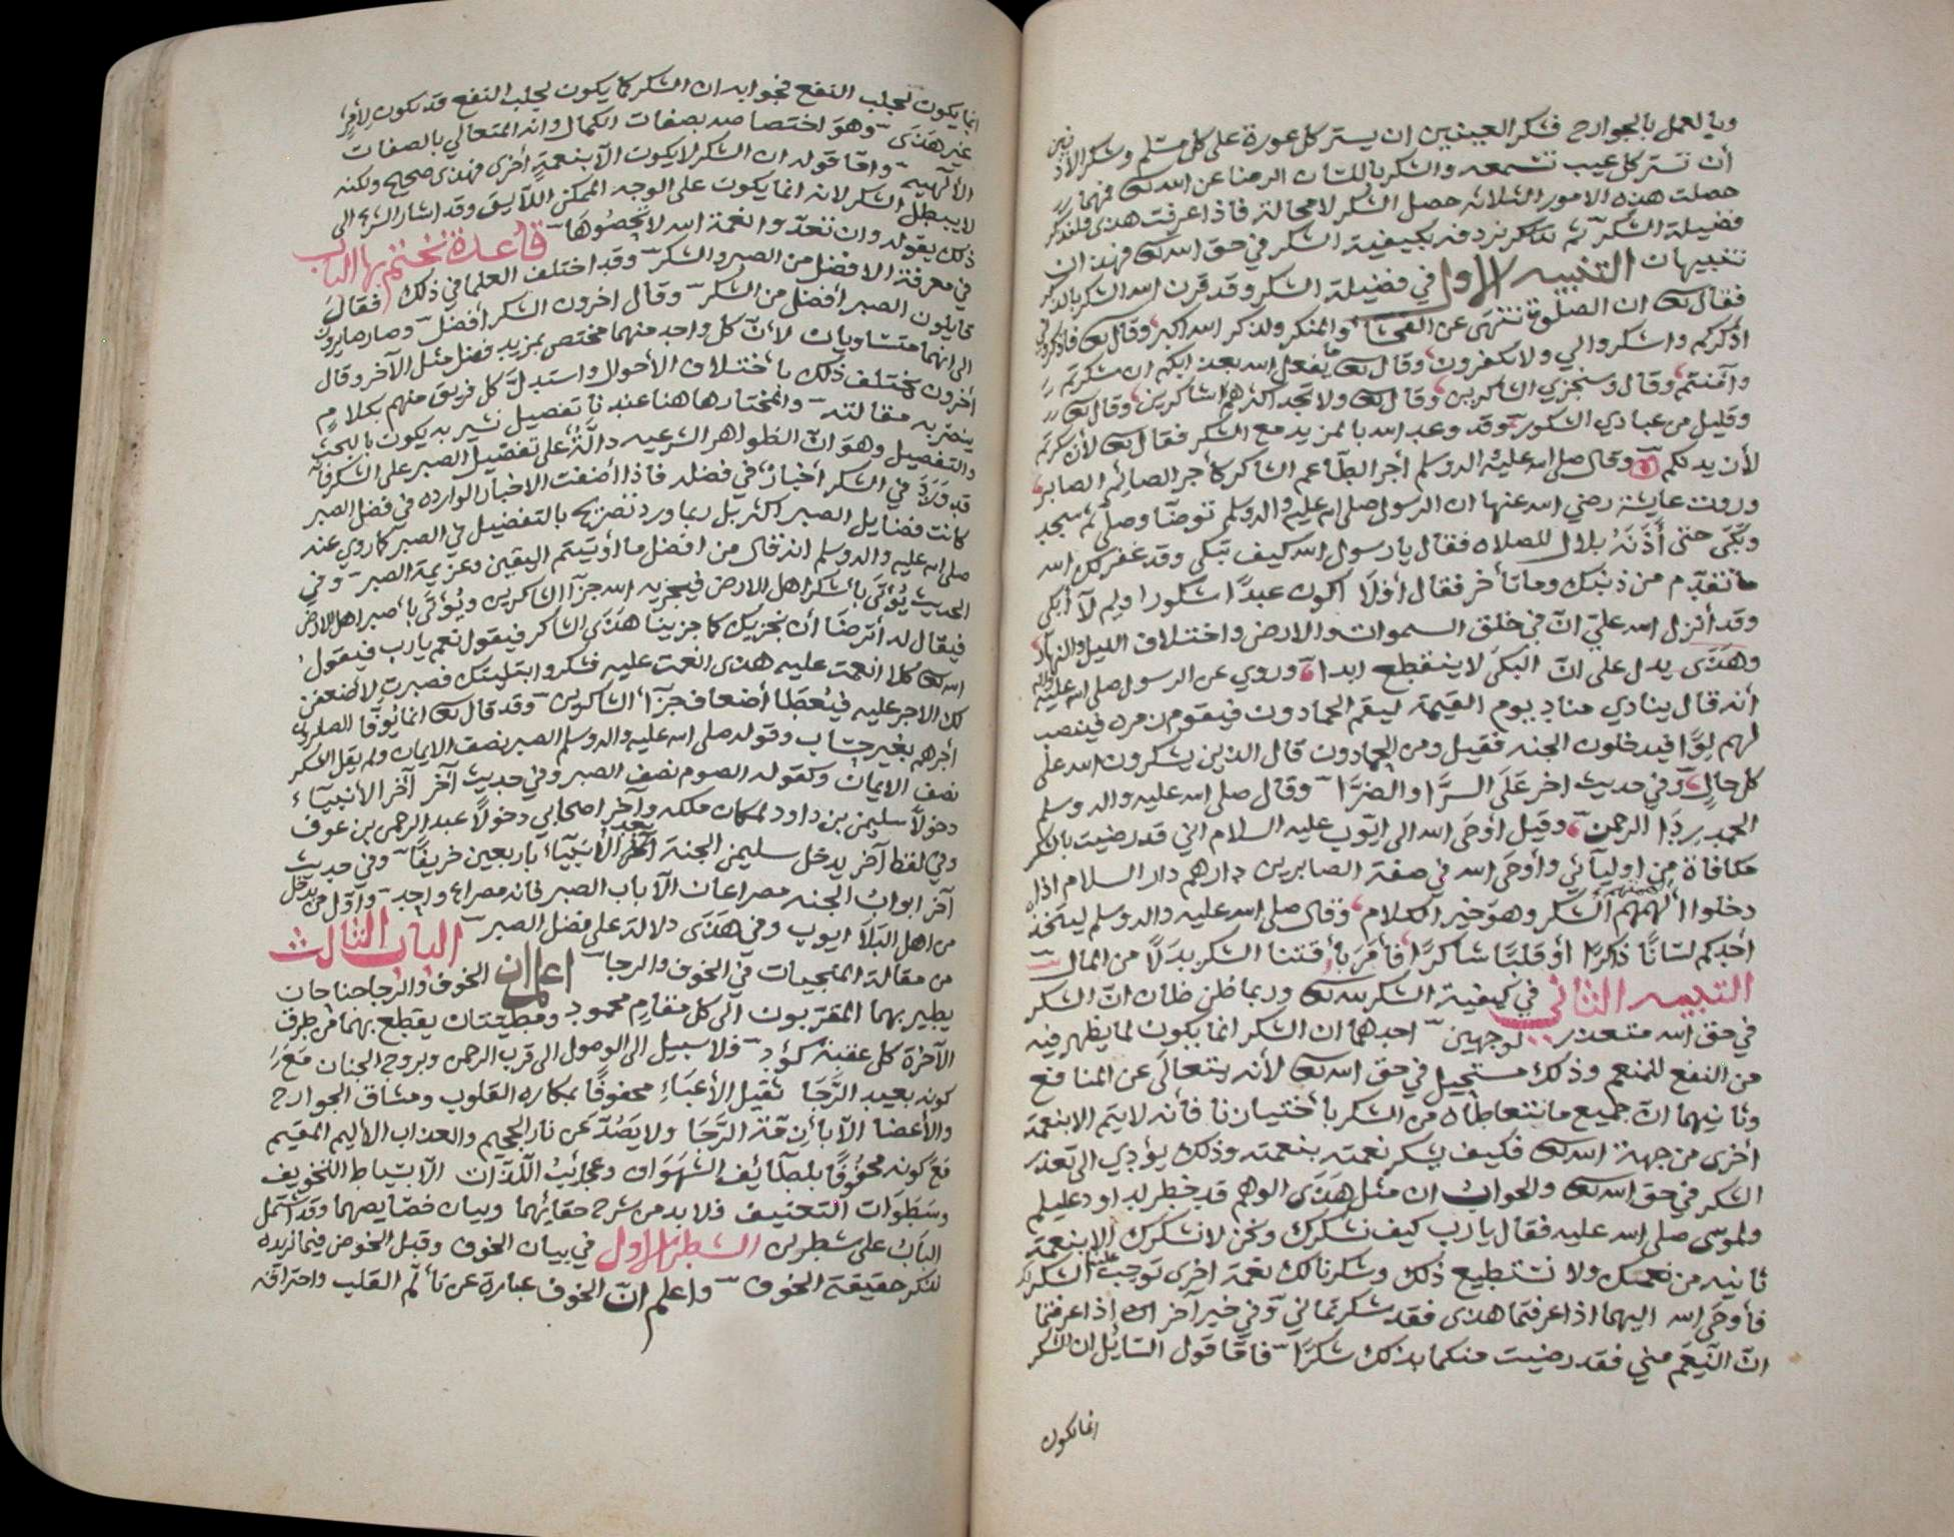 وبالعمل بالجوارح فشكر العينين ان يستر كل عورة على كل مسلم وشكر الاذنين
أن تستر كل عيب تسمعه والشكر باللسان الرضا عن الله تعالى فمهما
حصلت هذه الامور الثلاثه حصل الشكر لا محالة فاذا عرفت هذى فلنذكر
فضيلة الشكر ثم نذكر نردفه بكيفية الشكر في حق الله تعالى فهذان
تنبيهان التنبيه الاول في فضيلة الشكر وقد قرن الله الشكر بالذكر
فقال تعالى ان الصلوة تنهى عن الفحشا والمنكر ولذكر الله اكبر وقال تعالى فاذكروني
اذكركم واشكروا لي ولا تكفرون وقال تعالى ما يفعل الله بعذابكم ان شكرتم
وآمنتم وقال وسنجزي الشاكرين وقال تعالى ولا تجد اكثرهم شاكرين وقال تعالى
وقليل من عبادي الشكور وقد وعد الله بالمزيد مع الشكر فقال تعالى لأن شكرتم
لأزيدنكم وقال صلى الله عليه واله وسلم أجر الطاعم الشاكر كأجر الصائم الصابر
وروت عايشة رضي الله عنها ان الرسول صلى الله عليه واله وسلم توضأ وصلى ثم سجد
وبكى حتى أذنه بلال للصلاه فقال يا رسول الله كيف تبكى وقد غفر لك الله
ما تقدم من ذنبك وما تأخر فقال أفلا اكون عبدا شكورا ولم لا أبكى
وقد أنزل الله علي ان في خلق السموات والارض واختلاف الليل والنهار
وهذى يدل على ان البكى لا ينقطع ابدا وروي عن الرسول صلى الله عليه واله
أنه قال ينادي مناد يوم القيمة ليقم الحمادون فيقوم زمره فينصب
لهم لوا فيدخلون الجنه فقيل ومن الحمادون قال الذين يشكرون الله على
كل حال وفي حديث اخر على السرا والضرا وقال صلى الله عليه واله وسلم
الحمد ردا الرحمن وقيل أوحى الله الى ايوب عليه السلام اني قد رضيت بالشكر
مكافاة من اوليآئي وأوحى الله في صفة الصابرين دارهم دار السلام اذا
دخلوا ألهمهم الشكر وهو خير الكلام وقال صلى الله عليه واله وسلم ليتخذ
أحدكم لسانا ذاكرا أو قلبا شاكرا فأمر باقتنا الشكر بدلا من المال
التنبيه الثاني في كيفية الشكر لله تعالى وربما ظن ظان ان الشكر
في حق الله متعذر لوجهين احدهما ان الشكر انما يكون لما يظهر فيه
من النفع للمنعم وذلك مستحيل في حق الله تعالى لأنه يتعالى عن المنافع
وثانيهما ان جميع ما نتعاطاه من الشكر باختيارنا فأنه لا يتم الا بنعمة
أخرى من جهة الله تعالى فكيف يشكر نعمته بنعمته وذلك يؤدي الى تعذر
الشكر في حق الله تعالى والجواب ان مثل هذى الوهم قد خطر لداود عليلم
ولموسى صلى الله عليه فقال يا رب كيف نشكرك ونحن لا نشكرك الا بنعمة
ثانيه من نعمك ولا نستطيع ذلك وشكرنا لك نعمة اخرى توجب علينا الشكر لك
فأوحى الله اليهما اذا عرفتما هذى فقد شكرتماني وفي خبر آخر اذا عرفتما
ان النعم مني فقد رضيت منكما بذلك شكرا فاما قول السايل ان الشكر
انما يكون
انما يكون لجلب النفع فجوابه ان الشكر كما يكون لجلب النفع قد يكون لأمر
غير هذى وهو اختصاصه بصفات الكمال وانه المتعالي بالصفات
الألهيه واما قوله ان الشكر لا يكون الا بنعمة أخرى فهذى صحيح ولكنه
لا يبطل الشكر لانه انما يكون على الوجه الممكن اللايق وقد اشار الشرع الى
ذلك بقوله وان تعدوا نعمة الله لا تحصوها قاعدة نختم بها الباب
في معرفة الافضل من الصبر والشكر وقد اختلف العلما في ذلك فقال
قايلون الصبر أفضل من الشكر وقال اخرون الشكر أفضل وصار صايرون
الى انهما متساويان لأن كل واحد منهما مختص بمزيد فضل مثل الآخر وقال
أخرون يختلف ذلك باختلاف الأحوال واستدل كل فريق منهم بكلام
ينصر به مقالته والمختار هاهنا عندنا تفصيل نشير به يكون بالبحث
والتفصيل وهو ان الظواهر الشرعيه دالة على تفضيل الصبر على الشكر فأنه
قد ورد في الشكر أخبار في فضله فاذا أضفت الاخبار الوارده في فضل الصبر
كانت فضايل الصبر اكثر بل ربما ورد تصريح بالتفضيل في الصبر كما روي عنه
صلى الله عليه واله وسلم انه قال من افضل ما أوتيتم اليقين وعزيمة الصبر وفي
الحديث يؤتى بأشكر اهل الارض فيجزيه الله جزآ الشاكرين ويؤتى بأصبر اهل الارض
فيقال له أترضا أن نجزيك كما جزينا هذى الشاكر فيقول نعم يا رب فيقول
الله تعالى كلا انعمت عليه هذى انعمت عليه فشكر وابتليتك فصبرت لأضعفن
لك الاجر عليه فيعطا أضعاف جزآ الشاكرين وقد قال تعالى انما يوفا الصابرون
أجرهم بغير حساب وقوله صلى الله عليه واله وسلم الصبر نصف الايمان ولم يقل الشكر
نصف الايمان وكقوله الصوم نصف الصبر وفي حديث آخر آخر الأنبيآء
دخولا سليمن بن داود لمكان ملكه وآخر اصحابي دخولا عبد الرحمن بن عوف
وفي لفظ آخر يدخل سليمن الجنة بعد الأنبياء باربعين خريفا وفي حديث
آخر ابواب الجنه مصراعان الا باب الصبر فانه مصراع واحد وأول من يدخل
من اهل البلآ ايوب وفي هذى دلالة على فضل الصبر الباب الثالث
من مقالة المنجيات في الخوف والرجا اعلم ان الخوف والرجا جناحان
يطير بهما المقربون الى كل مقام محمود ومطيتان يقطع بهما من طرق
الآخرة كل عقبة كؤد فلا سبيل الى الوصول الى قرب الرحمن وبروح الجنان مع
كونه بعيد الرجا ثقيل الأعباء محفوفا بمكاره القلوب ومشاق الجوارح
والأعضا الا بأزمة الرجا ولا يصد عن نار الجحيم والعذاب الأليم المقيم
مع كونه محفوفا بلطائف الشهوات وعجائب اللذات الا بسياط التخويف
وسطوات التعنيف فلا بد من شرح حقائقهما وبيان خصايصهما وقد اشتمل
الباب على شطرين الشطر الاول في بيان الخوف وقبل الخوض فيما نريده
نذكر حقيقة الخوف واعلم ان الخوف عبارة عن تألم القلب واحتراقه